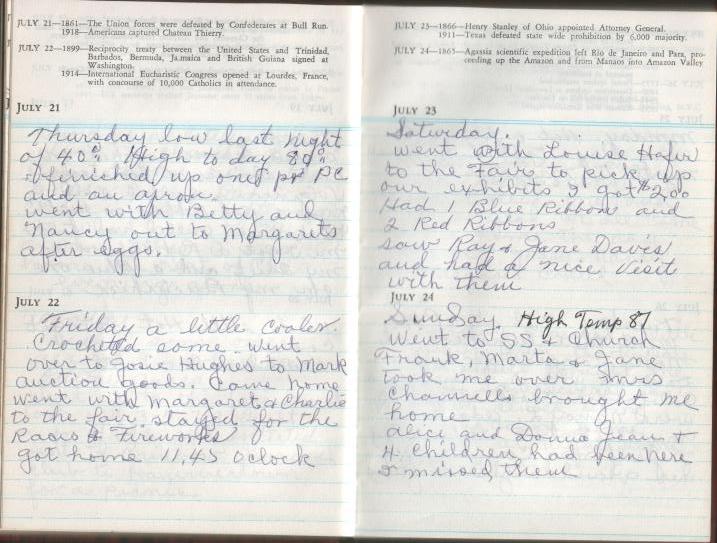 JULY 21—1861—The Union forces were defeated by Confederates at Bull Run.
1918—Americans captured Chateau Thierry.
JULY 22—1899—Reciprocity treaty between the United States and Trinidad,
Barbados, Bermuda, Jamaica and British Guiana signed at
Washington.
1914—International Eucharistic Congress opened at Lourdes, France,
with concourse of 10,000 Catholics in attendance.
JULY 21
Thursday low last night
of 40° High to day 80°
finished up one pr PC
and an apron.
went with Betty and
Nancy out to Margarets
after eggs.
JULY 22
Friday a little cooler.
Crocheted some. went
over to Josie Hughes to Mark
auction goods. Came home
went with Margaret & Charlie
to the fair stayed for the
Races & Fireworks
got home 11,45 oclock
JULY 23—1866—Henry Stanley of Ohio appointed Attorney General.
1911—Texas defeated state wide prohibition by 6,000 majority.
JULY 24—1865—Agassia scientific expedition left Rio de Janeiro and Para, pro-
ceeding up the Amazon and from Manaos into Amazon Valley
JULY 23
Saturday.
went with Louise Hofer
to the Fair to pick up
our exhibits I got $2.00
Had 1 Blue Ribbon and
2 Red Ribbons
saw Ray & Jane Davis
and had a nice Visit
with them
JULY 24
Sunday. High Temp 87
Went to SS & Church
Frank, Marta & Jane
took me over Mrs
Channells brought me
home
Alice and Donna Jean &
4 children had been here
I missed them